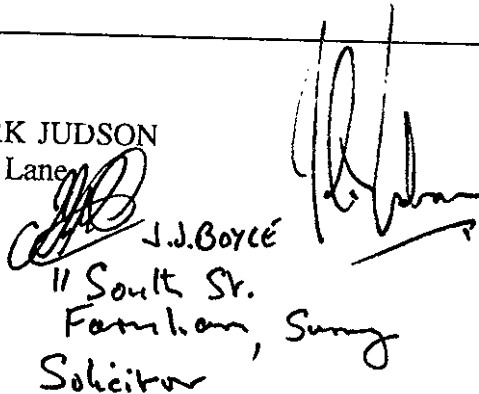 RK JUDSON
Lane
J.J. BOYCE
11 South St.
Farnham, Surrey
Solicitor